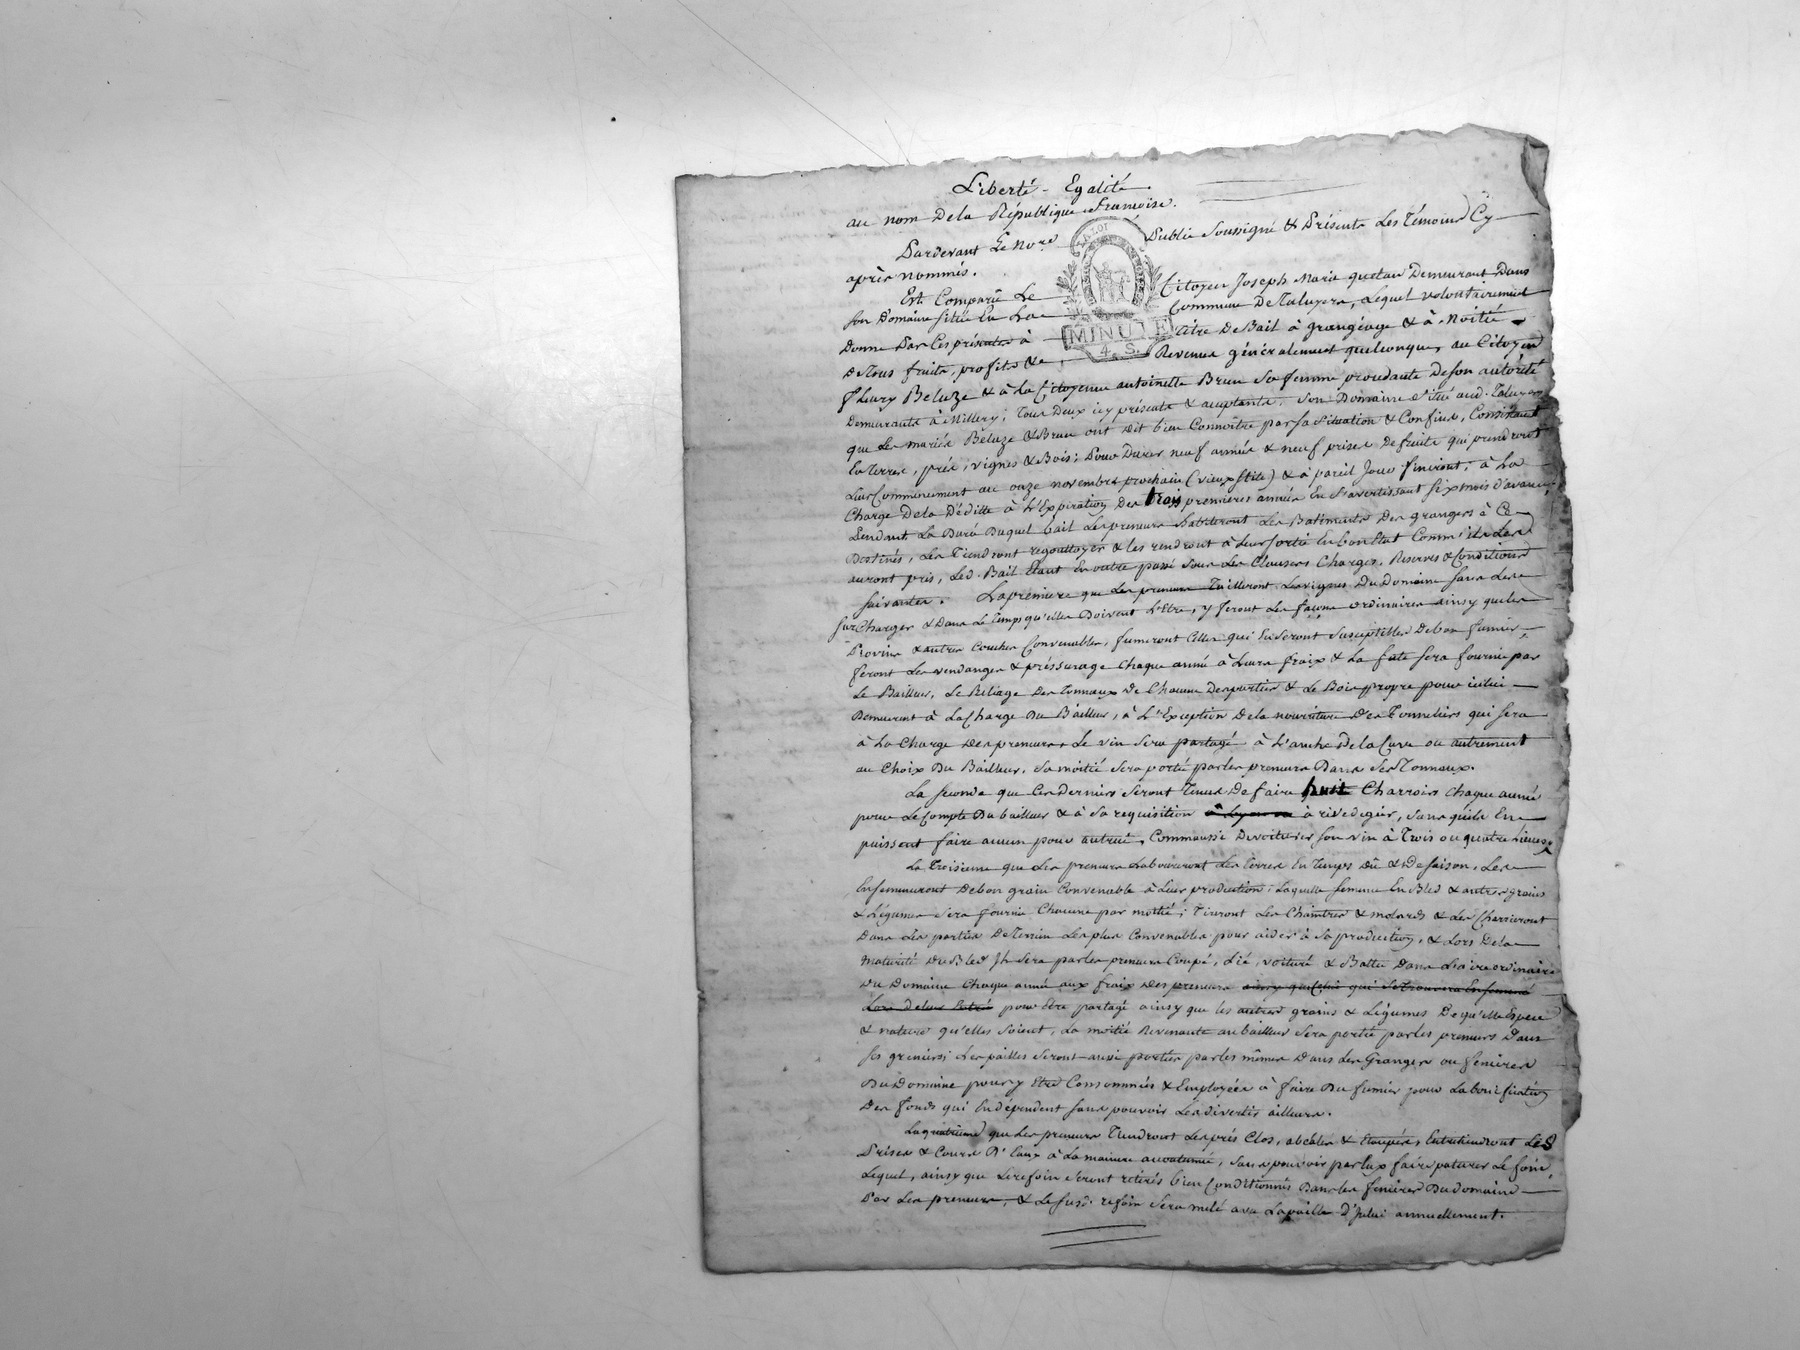 Liberté - Egalité.
au nom De la République françoise.
Pardevant Le No.re Public Soussigné & Présents Les Témoins Cy
après nommés.
LA LOI
MINUTE
4. S.
Est Comparu Le Citoyen Joseph Marie quetan Demeurant Dans
Son Domaine situé En La Commune De Taluyers, Lequel volontairement
Donne Par Ces présentes à titre De Bail à grangéage & à Moitié
De Tous fruits, profits & Revenus généralement quelconques, au Citoyen
fleury Beluze & à La Citoyenne antoinette Brun Sa femme procédante De son autorité
Demeurants à Millery; Tous Deux icy présents & acceptants. Son Domaine situé aud. Taluyers
que Les mariés Beluze & Brun ont Dit bien Connoître par sa situation & Confins, Consistant
En Terres, prés, vignes & Bois; Pour Durer neuf années & neuf prises De fruits qui prendront
Leur Commencement au onze novembre prochain (vieux stile) & à pareil Jour finiront, à La
Charge De la Déditte à L'Expiration Des trois premieres années En s'avertissant six mois d'avance;
Pendant La Duré Duquel bail Les preneurs habiteront Les Batiments Des grangers à Ce
Destinés, Les Tiendront regouttoyés & les rendront à Leur sortie En bon Etat Comm'ils Les
auront pris, Led. Bail Etant En outre passé Sous Les Clauses Charges, Reserves & Conditions
Suivantes. La premiere que Les preneurs Tailleront Les vignes Du Domaine sans Les
surCharger & Dans Le temps qu'elles Doivent L'Etre, y feront Les façons ordinaires ainsy que les
Provins & autres Couches Convenables, fumeront Celles qui En seront susceptibles De bon fumier,
feront Les vendanges & préssurage Chaque année à Leurs fraix & La futs sera fournie par
Le Bailleur, Le Reliage Des Tonneaux De Chacune Des parties & Le Bois propre pour icelui
Demeurent à La Charge Du Bailleur, à L'Exception De la nourriture Des Tonneliers qui sera
à La Charge Des preneurs, Le vin Sera partagé à L'anche De la Cuve ou autrement
au Choix Du Bailleur, Sa moitié Sera porté par les preneurs Dans Ses Tonneaux.
La seconde que Ces Derniers Seront Tenus De faire huit Charrois Chaque année
pour Le Compte Du bailleur & à Sa requisition à Lyon ou à rivedegier, Sans qu'ils En
puissent faire aucun pour autrui, Comme aussi De voiturer Son vin à Trois ou quatre Lieues
La Troisieme que Les preneurs Laboureront Les terres En Temps Dû & De saison, Les
Ensemenceront De bon grain Convenable à Leur production; Laquelle semence En Bled & autres grains
& Légumes Sera fournie Chacune par moitié; Tireront Les Chaintres & molards & Les Charrieront
Dans Les parties De Terrein Les plus Convenables pour aider à Sa production, & Lors De la
maturité Du Bled Il Sera par les preneurs Coupé, Lié, voituré & Battu Dans L'aire ordinaire
Du Domaine Chaque année aux fraix Des preneurs ainsy que Celui qui Se trouvera Ensemencé
Lors De leur Entrée pour Etre partagé ainsy que les autres grains & Légumes De qu'elle Espece
& nature qu'elles soient, La moitié Revenante au bailleur Sera portée par les preneurs Dans
Ses greniers; Les pailles Seront aussi portées par les mêmes Dans Les Granges ou fenieres
Du Domaine pour y Etre Consommées & Employées à faire Du fumier pour La bonification
Des fonds qui En dépendent sans pouvoir Les divertir ailleurs.
La quatrieme que Les preneurs Tiendront Les prés Clos, & Etoupés, Entretiendront Les
Prises & Cours D'Eaux à La maniere accoutumée, Sans pouvoir par Eux faire paturer Le foin,
Lequel, ainsy que Le refoin Seront retirés bien Conditionnés Dans les fenieres Du domaine
Par Les preneurs, & Le susd. refoin Sera melé avec La paille D'Icelui annuellement.